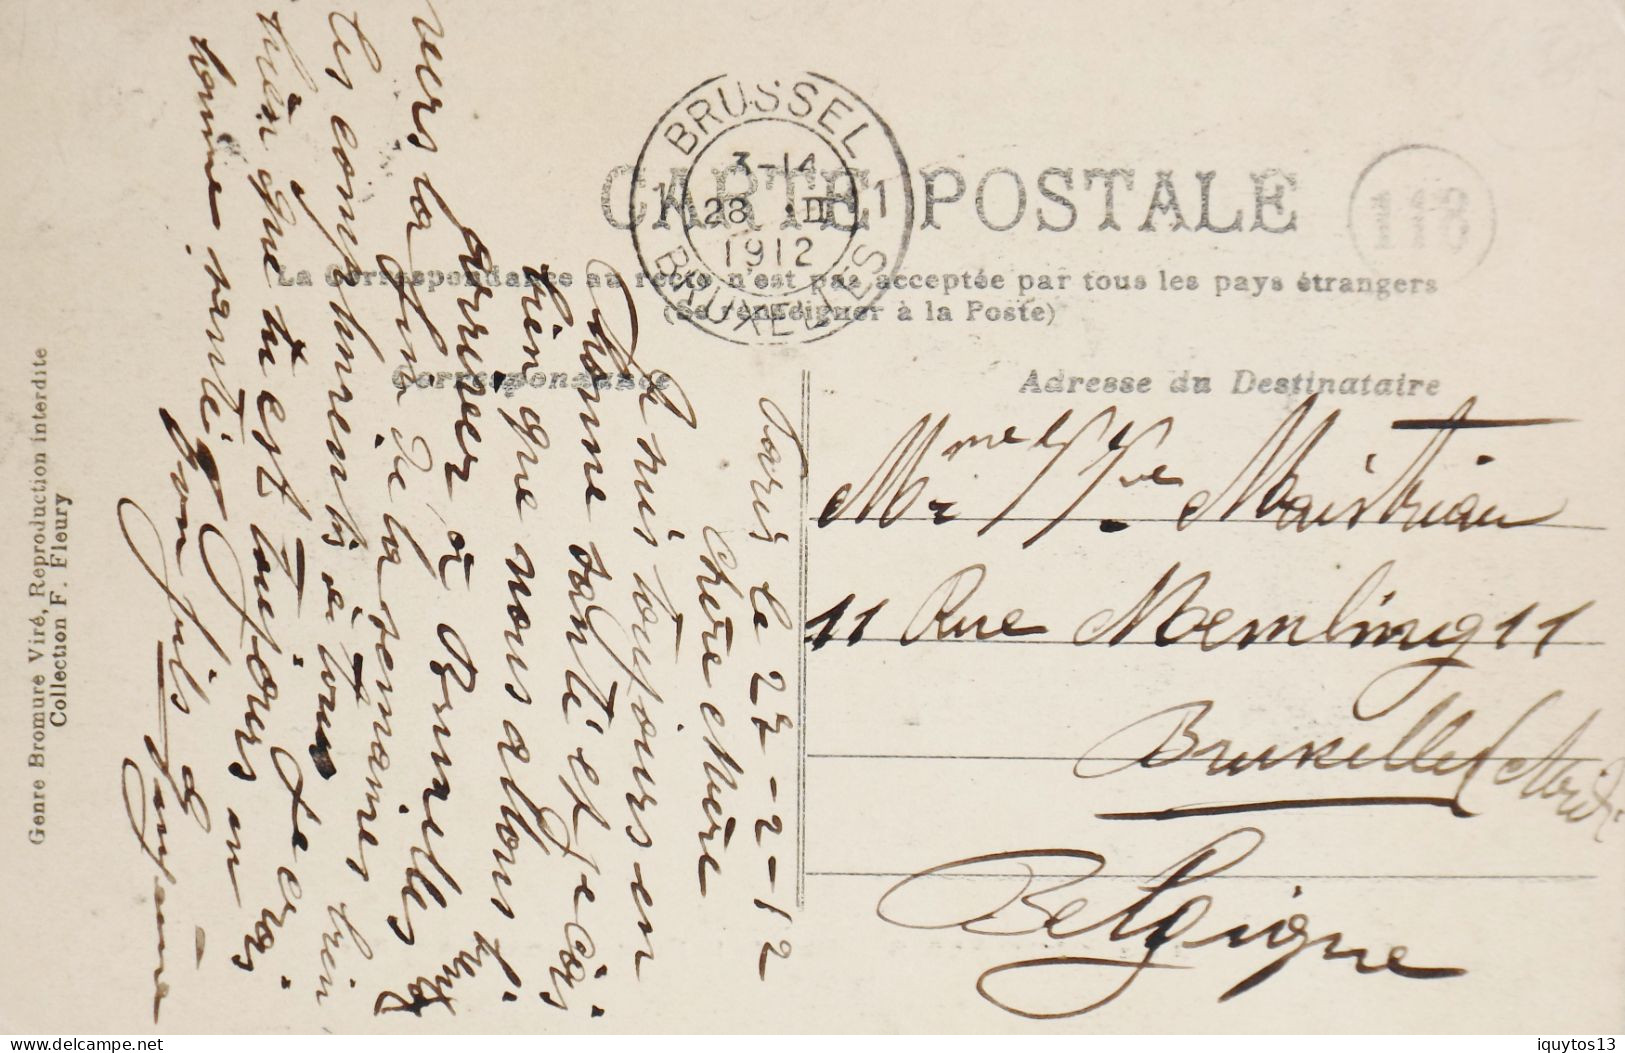 BRUSSEL
1 3-14 1
28 II
1912
BRUXELLES
CARTE POSTALE
118
La Correspondance au recto n'est pas acceptée par tous les pays étrangers
(Se renseigner à la Poste)
Correspondance
Adresse du Destinataire
Paris le 27-2-12
Chère Mère
Je suis toujours en
bonne santé et je crois
bien que nous allons
arriver à Bruxelles
vers la fin de la semaine
les compliments à tous
bien que tu est toujours en
bonne santé
Ton fils
Mme Vve Maistriau
11 Rue Memling 11
Bruxelles (Midi)
Belgique
Genre Bromure Viré, Reproduction interdite
Collection F. Fleury
delcampe.net
iquytos13